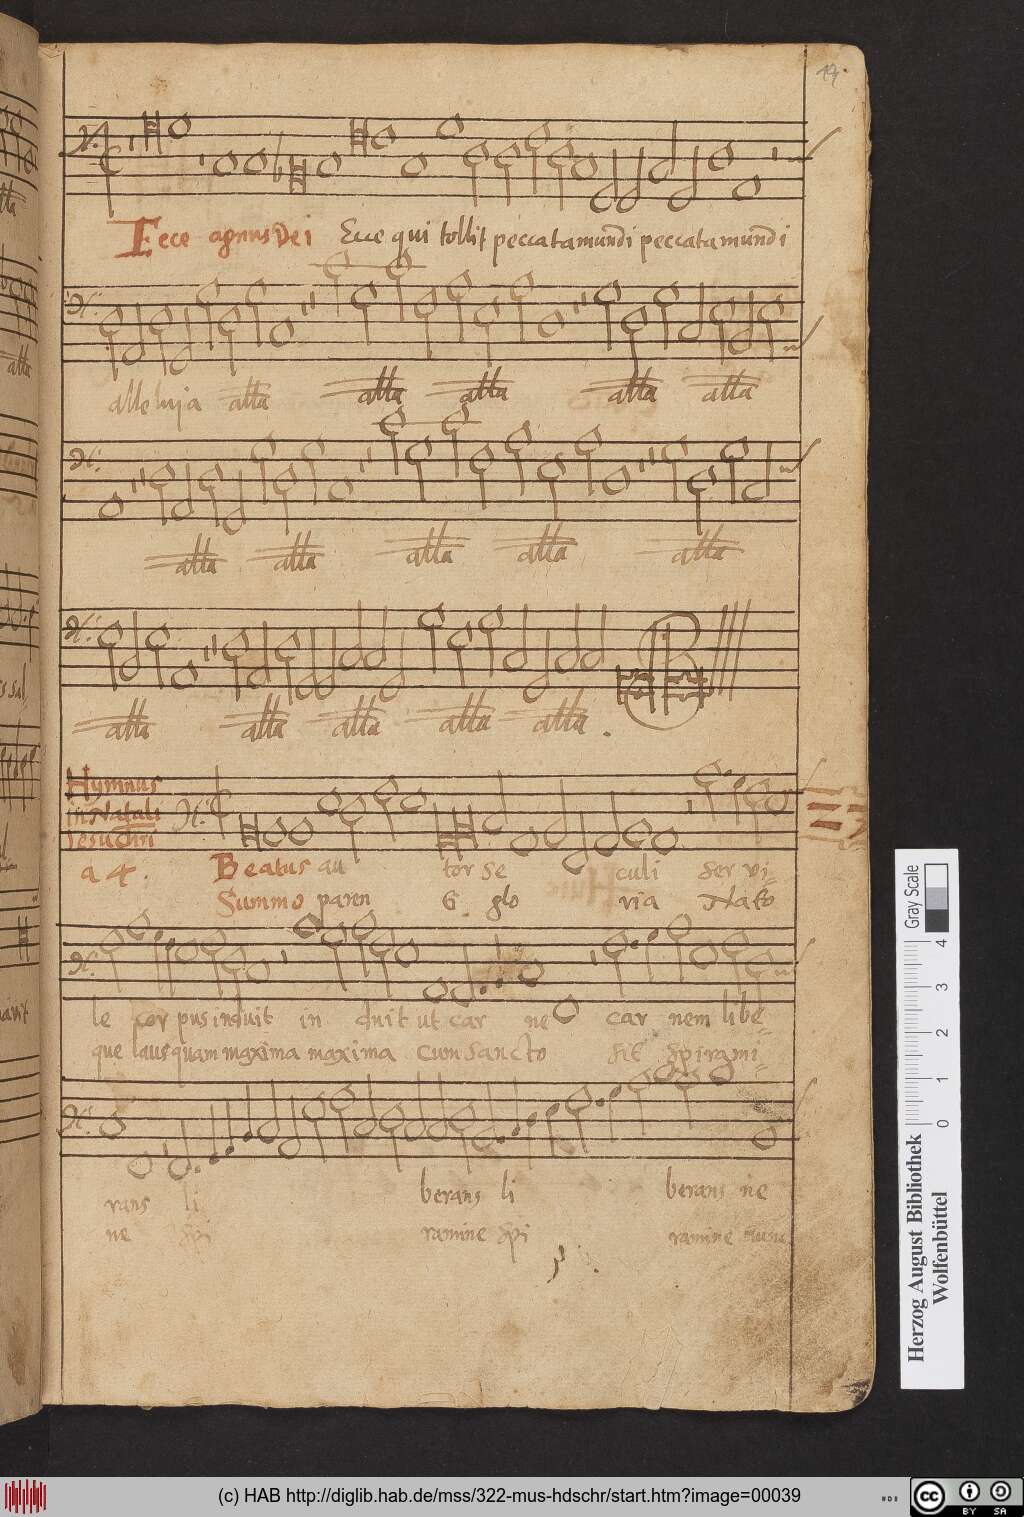 19.
Ecce agnus Dei Ecce qui tollit peccata mundi peccata mundi
alleluja alla alla alla alla alla
alla alla alla alla alla
alla alla alla alla alla.
Hymnus
in Natali
Jesu Chri
a 4.
Beatus au tor se culi Ser vi
Summo paren G glo ria Nato
le cor pus induit in duit ut car ne car nem libe
que laus quam maxima maxima Cum sancto sit Spirami
rans li berans li berans ne
ne Spi ramine Spi ramine
Gray Scale
0 1 2 3 4
Herzog August Bibliothek
Wolfenbüttel
(c) HAB http://diglib.hab.de/mss/322-mus-hdschr/start.htm?image=00039
cc BY SA